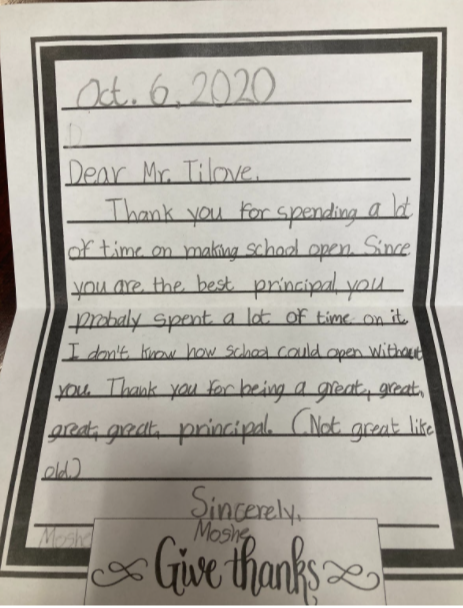 Oct. 6, 2020
Dear Mr. Tilove,
Thank you for spending a lot
of time on making school open. Since
you are the best principal you
probaly spent a lot of time on it.
I don't know how school could open without
you. Thank you for being a great, great,
great, great, principal. (Not great like
old.)
Sincerely,
Moshe
Moshe
Give thanks